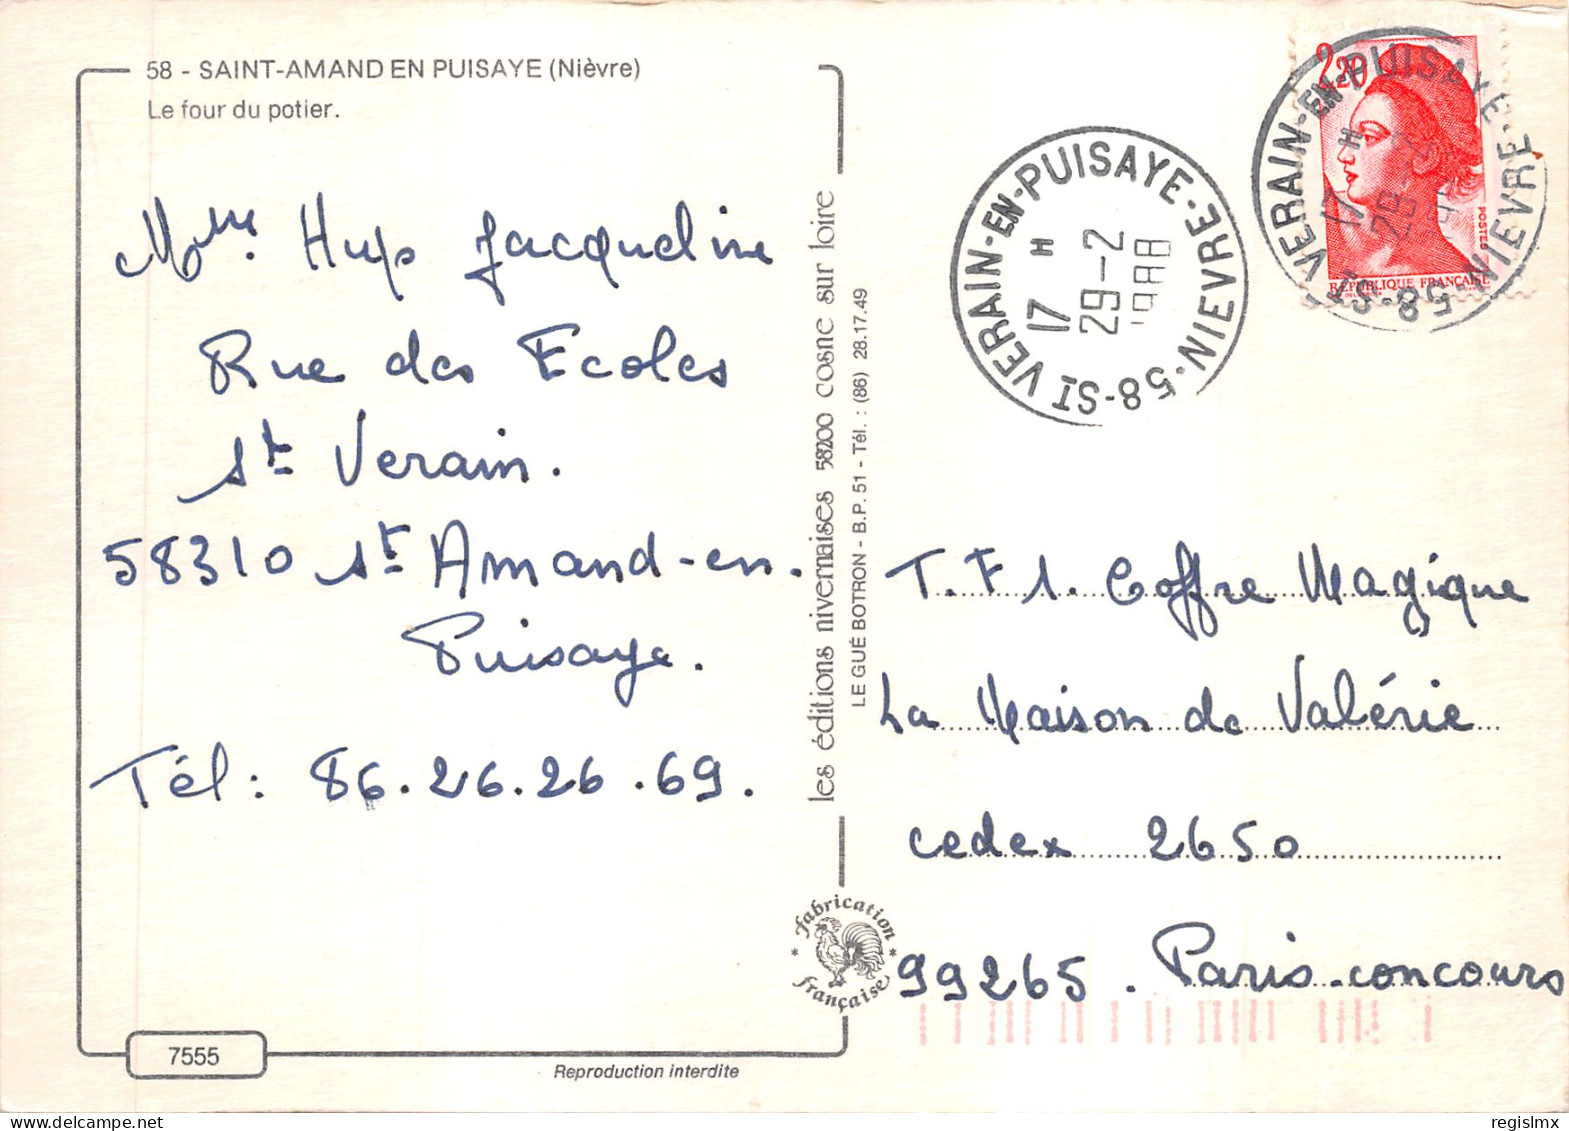 58 - SAINT-AMAND EN PUISAYE (Nièvre)
Le four du potier.
Mme. Hup Jacqueline
Rue des Ecoles
St Verain.
58310 St Amand-en.
Puisaye.
Tél : 86.26.26.69.
7555
Reproduction interdite
les éditions nivernaises 58200 cosne sur loire
LE GUÉ BOTRON - B.P. 51 - Tél. : (86) 28.17.49
fabrication
française
ST VERAIN-EN-PUISAYE-NIEVRE-58-
17 H
29-2
1988
2,20
POSTES
RÉPUBLIQUE FRANÇAISE
ST VERAIN-EN-PUISAYE-NIEVRE-58-
17 H
29-2
T.F1. Coffre Magique
La Maison de Valérie
cedex 2650
99265. Paris-concours
regislmx